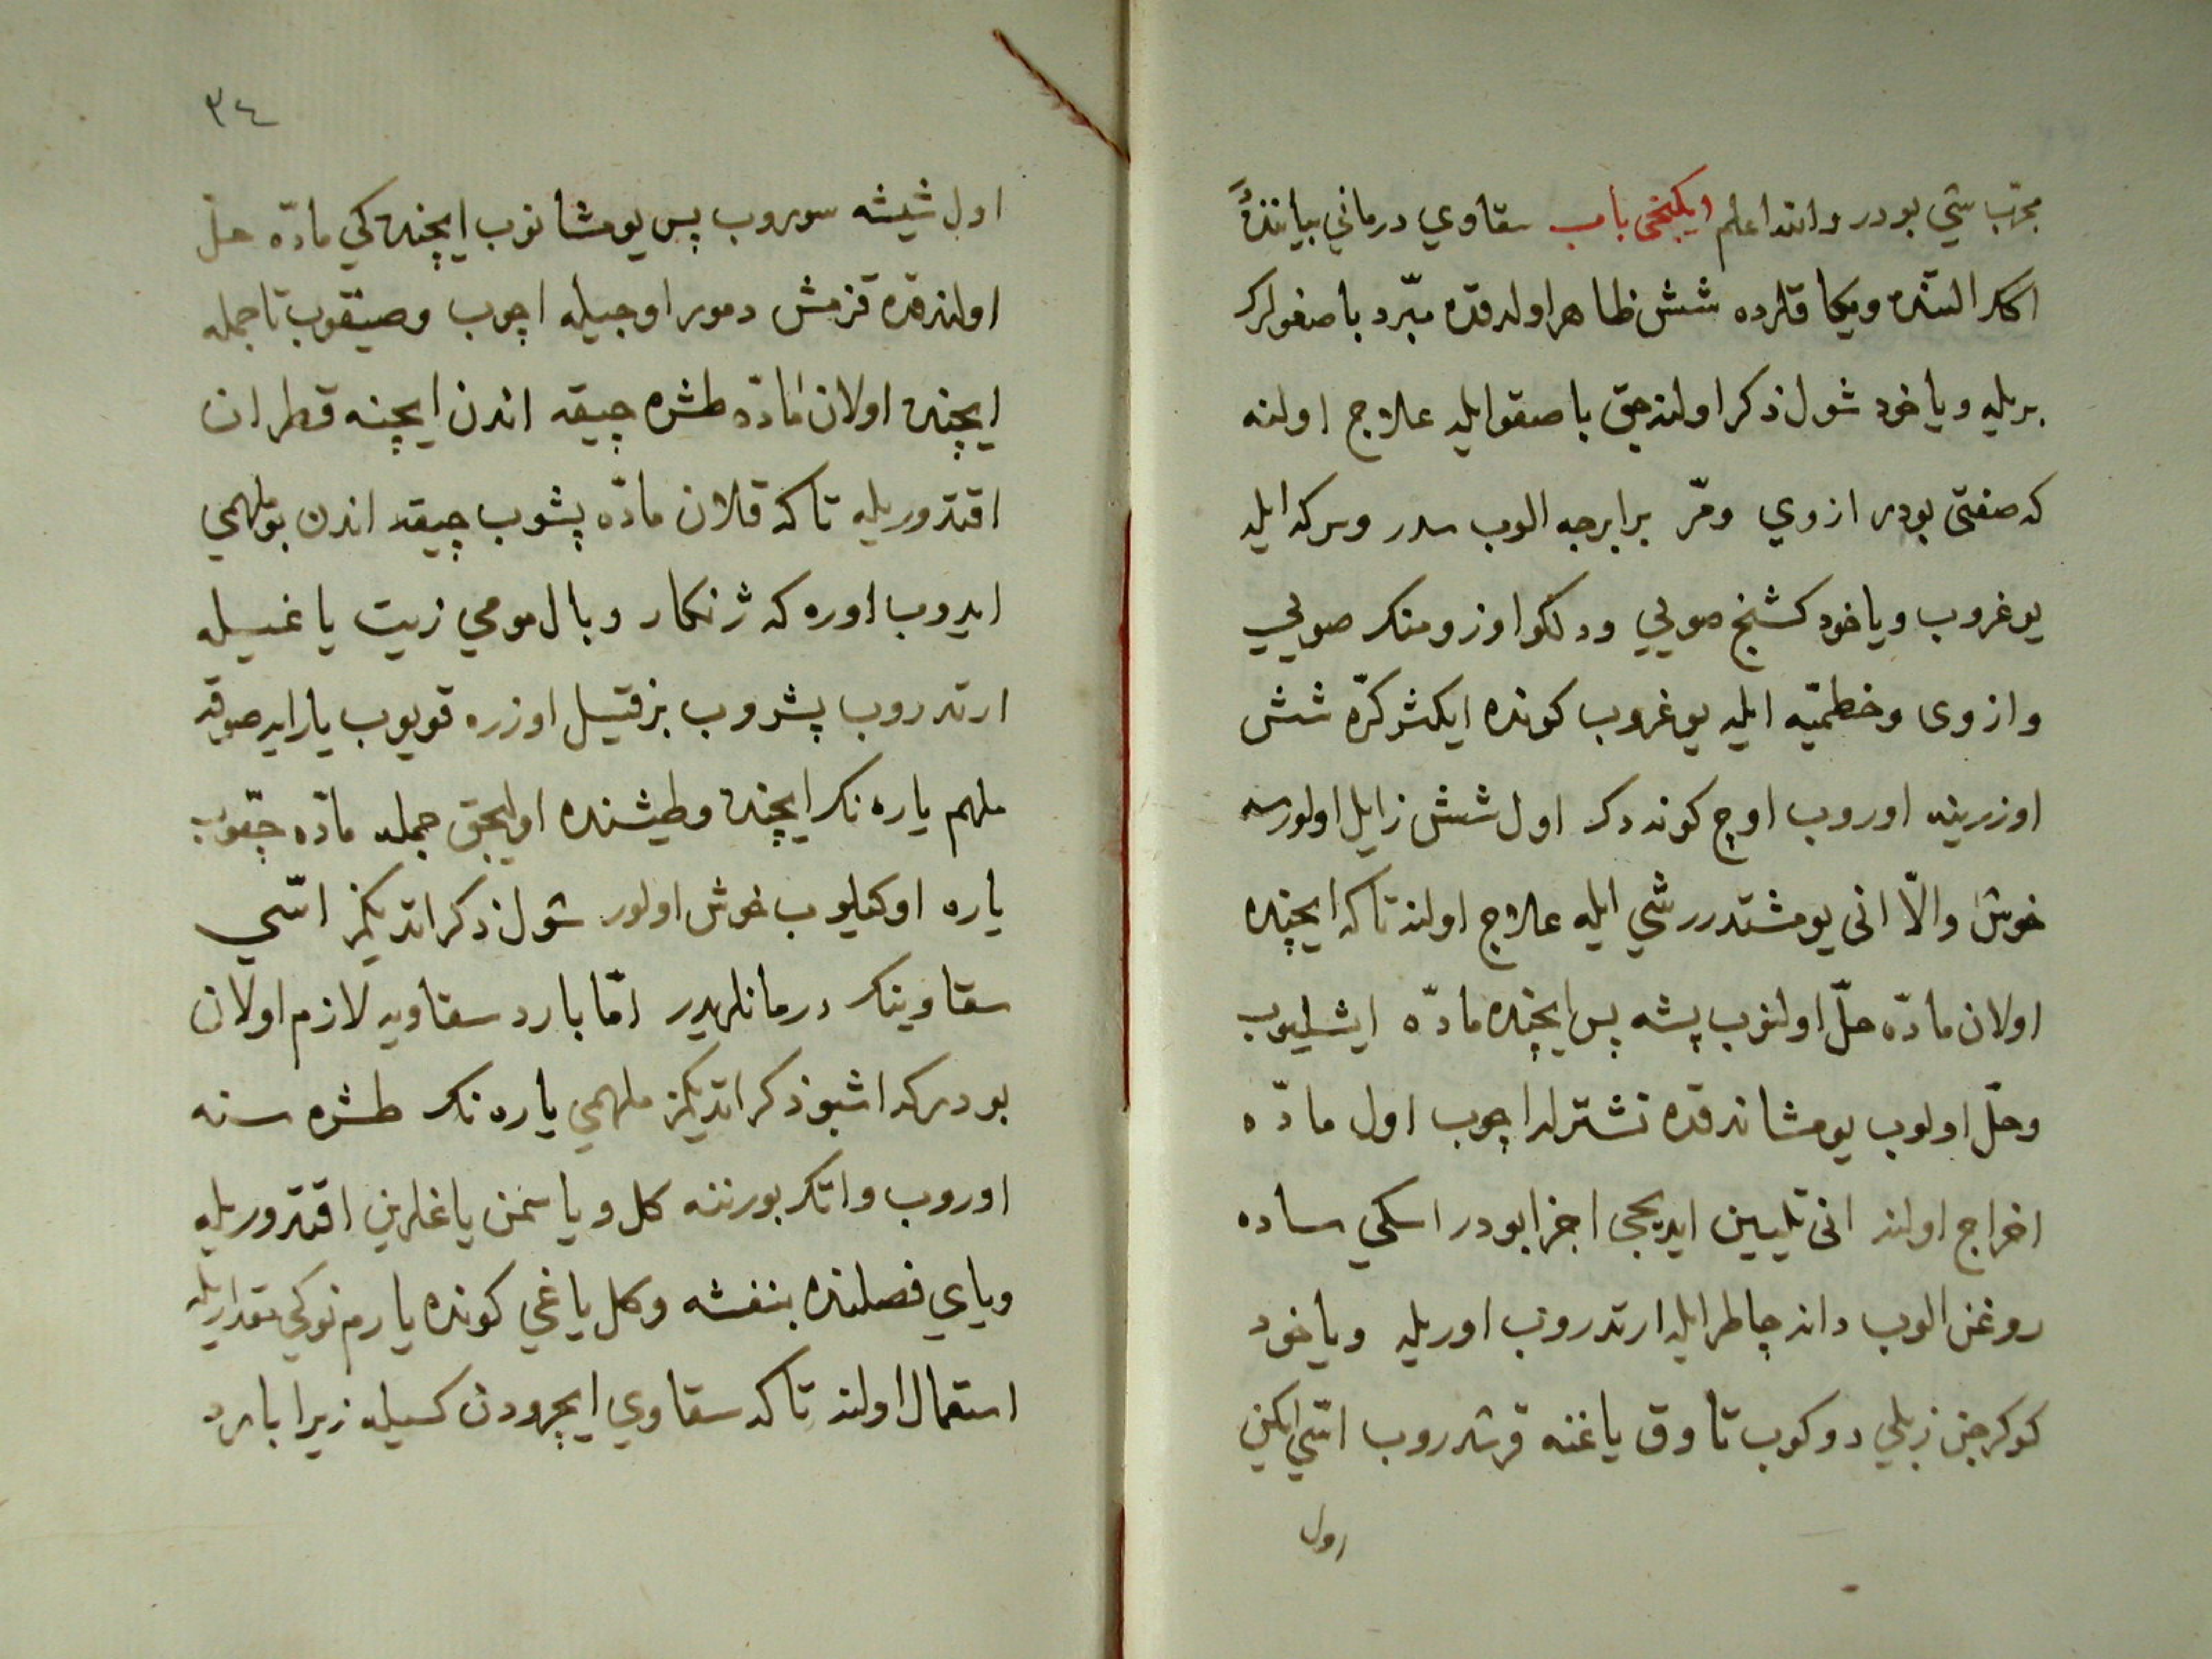 مجرّب شي بودر والله اعلم ايكنجى باب سقاوي درماني بياننده
اكر التنده ويكاقلرده شش ظاهر اولدقده مبّرد ياصغولر
بريله وياخود شول ذكر اولنه جق ياصقو ايله علاج اولنه
كه صفتى بودر ازوي ومرّ برابرجه الوب سدر وسركه ايله
يوغروب وياخود كشنج صويي ودلكو اوزومنك صويي
وازوى وخطميّه ايله يوغروب كونده ايكشر كرّه شش
اوزرينه اوروب اوچ كونه دك اول شش زايل اولورسه
خوش والّا انى يومشتدرر شي ايله علاج اولنه تاكه ايچنده
اولان مادّه حلّ اولنوب پشه پس ايچنده مادّه ايشليوب
وحلّ اولوب يومشاندقده نشترله اچوب اول مادّه
اخراج اولنه انى تليين ايديجى اجزا بودر اسكي ساده
روغن الوب دانه چاطر ايله ارتدروب اوريله وياخود
كوكرجن زبلي دوكوب تاوق ياغنه قرشدروب اسّي ايكن
اول
٣٤
اول شيشه سوروب پس يومشانوب ايچنده كي مادّه حلّ
اولندقده قزمش دمور اوجيله اچوب وصيقوب تا جمله
ايچنده اولان مادّه طشره چيقه اندن ايچنه قطران
اقتدوريله تاكه قلان مادّه پشوب چيقه اندن بو ملهمي
ايدوب اوره كه ژنكار وبال مومي زيت ياغيله
ارتدروب پشروب بر فتيل اوزره قويوب يارايه صوقه
ملهم ياره نك ايچنده وطيشنده اوليجق جمله مادّه چقوب
ياره اوكيلوب خوش اولور شول ذكر اتديكمز اسّي
سقاوينك درمانلريدر امّا بارد سقاويه لازم اولان
بودركه اشبو ذكر اتديكمز ملهمي ياره نك طشره سنه
اوروب واتك بورننه كل وياسمن ياغلرين اقتدوريله
وياي فصلنده بنفشه وكل ياغي كونده يارم نوكي مقداريله
استعمال اولنه تاكه سقاوي ايچرودن كسيله زيرا بارد